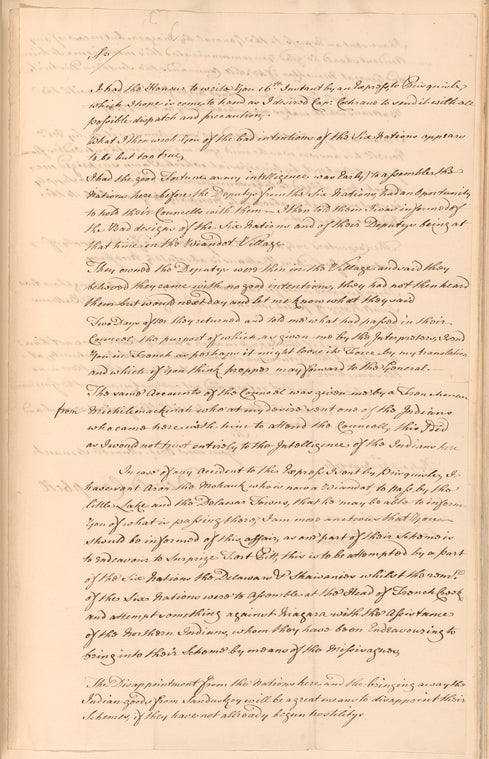 Sr.
I had the Honour to write You 16th Instant by an Express to Prisquisle,
which I hope is come to hand as I desired Cap: Cochrane to send it with all
possible dispatch and precaution,
What I then wrote You of the bad intentions of the Six Nations appears
to be but too true,
I had the good Fortune as my intelligence was Early, to assemble the
Nations here before the Deputys from the Six Nations, had an Oportunity
to hold their Councells with them — I then told them I was informed of
the Bad designs of the Six Nations and of their Deputys being at
that time in the Wiandot Village
They owned the Deputys were then in the Village and said they
believed they came with no good intentions, they had not then heard
them but would next day and let me know what they said
Two Days after they returned and told me what had passed in their
Council, the purport of which, as given me by the Interpreter, I send
You in French as perhaps it might loose its Force by my translation
and which if You think propper may forward to the General —
The same Accounts of the Council was given me by a Frenchman
from Michilimackinak who at my desire sent one of the Indians
who came here with him to attend the Councill, this I did
as I would not trust entirely to the Intelligence of the Indians here
In case of any Accident to the Express I sent by Prisquisle, I
have sent Aron the Mohawk who is now a Wiandot to pass by the
little Lake and the Delawar Towns, that he may be able to inform
You of what is passing there, I am more anxious that You
should be informed of this affair, as one part of their Scheme is
to endeavour to Surprize Fort Pitt, this is to be attempted by a part
of the Six Nations the Delawars & Shawanies whilst the rem.
of the Six Nations were to Assemble at the Head of French Creek
and attempt something against Niagara with the Assistance
of the Northern Indians, whom they have been Endeavouring to
bring into their Scheme by means of the Missisagues,
The Disappointment from the Nations here and the bringing away the
Indian goods from Sandusky will be a great means to disappoint their
Schemes, if they have not allready begun hostilitys